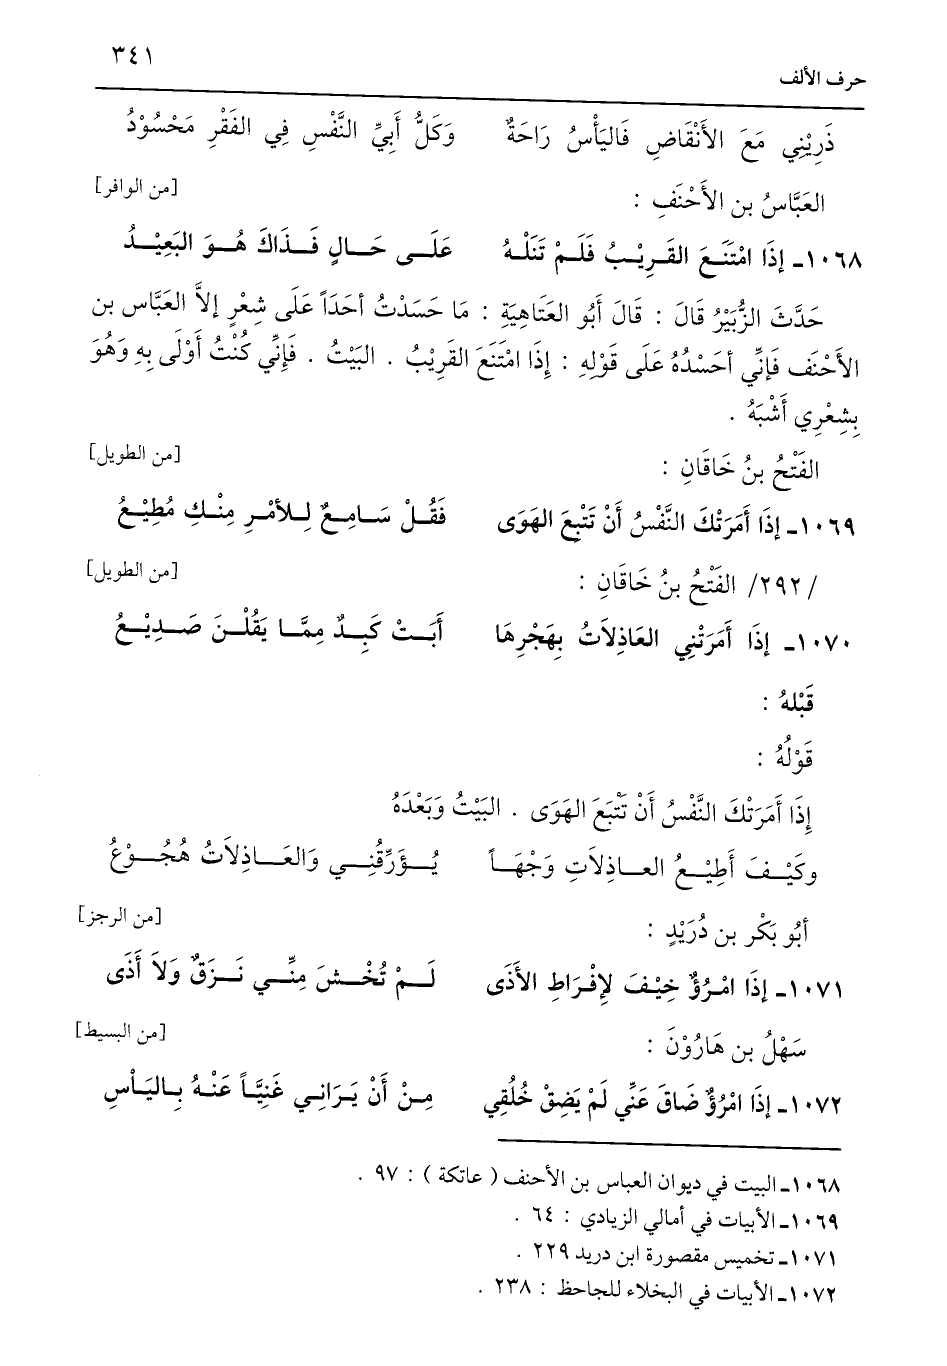 حرف الألف ٣٤١
ذَرِيْنِي مَعَ الأَنْقَاضِ فَاليَأْسُ رَاحَةٌ وَكَلُّ أَبِيِّ النَّفْسِ فِي الفَقْرِ مَحْسُوْدُ
العَبَّاسُ بن الأَحْنَفِ : [من الوافر]
١٠٦٨ـ إِذَا امْتَنَعَ القَرِيْبُ فَلَمْ تَنَلْهُ عَلَى حَالٍ فَذَاكَ هُوَ البَعِيْدُ
حَدَّثَ الزُّبَيْرُ قَالَ : قَالَ أَبُو العَتَاهِيَةِ : مَا حَسَدْتُ أحَدَاً عَلَى شِعْرٍ إلاَّ العَبَّاس بن
الأَحْنَف فَإنِّي أحَسْدُهُ عَلَى قَوْلِهِ : إِذَا امْتَنَعَ القَرِيْبُ . البَيْتُ . فَإنِّي كُنْتُ أَوْلَى بِهِ وَهُوَ
بِشِعْرِي أَشْبَهُ .
الفَتْحُ بنُ خَاقَانِ : [من الطويل]
١٠٦٩ـ إذَا أَمَرَتْكَ النَّفْسُ أَنْ تَتْبعَ الهَوَى فَقُلْ سَامِعٌ لِلأمْرِ مِنْكِ مُطِيْعُ
/٢٩٢/ الفَتْحُ بنُ خَاقَانِ : [من الطويل]
١٠٧٠ـ إذَا أَمَرَتْنِي العَاذِلاَتُ بِهَجْرِهَا أَبَتْ كَبِدٌ مِمَّا يَقُلْنَ صَدِيْعُ
قَبْلهُ :
قَوْلُهُ :
إِذَا أَمَرَتْكَ النَّفْسُ أَنْ تَتْبَعَ الهَوَى . البَيْتُ وَبَعْدَهُ
وكَيْفَ أَطِيْعُ العاذِلاَتِ وَجْهَاً يُؤَرِّقُنِي وَالعَاذِلاَتُ هُجُوْعُ
أبُو بَكْر بن دُرَيْدٍ : [من الرجز]
١٠٧١ـ إذَا امْرُؤٌ خِيْفَ لإِفْرَاطِ الأذَى لَمْ تُخْشَ مِنِّي نَزَقٌ وَلاَ أَذَى
سَهْلُ بن هَارُوْنَ : [من البسيط]
١٠٧٢ـ إذَا امْرُؤٌ ضَاقَ عَنِّي لَمْ يَضِقْ خُلُقِي مِنْ أَنْ يَرَانِي غَنِيَّاً عَنْهُ بِاليَأسِ
١٠٦٨ـ البيت في ديوان العباس بن الأحنف ( عاتكة ) : ٩٧ .
١٠٦٩ـ الأبيات في أمالي الزيادي : ٦٤ .
١٠٧١ـ تخميس مقصورة ابن دريد ٢٢٩ .
١٠٧٢ـ الأبيات في البخلاء للجاحظ : ٢٣٨ .